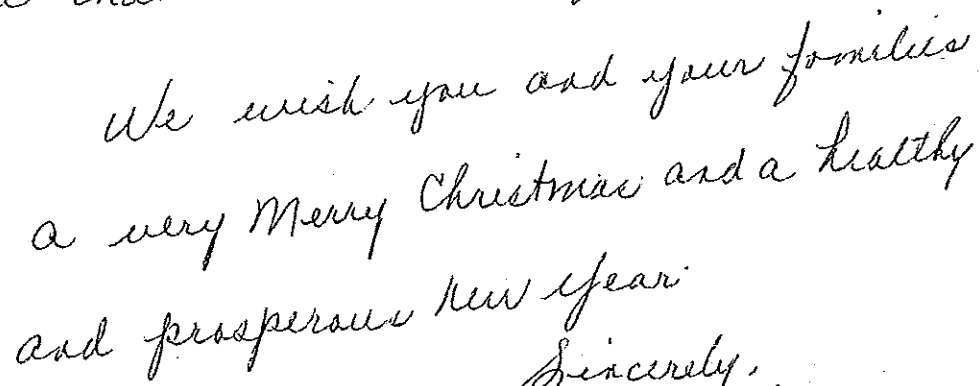 We wish you and your families
a very Merry Christmas and a healthy
and prosperous new year.
Sincerely,